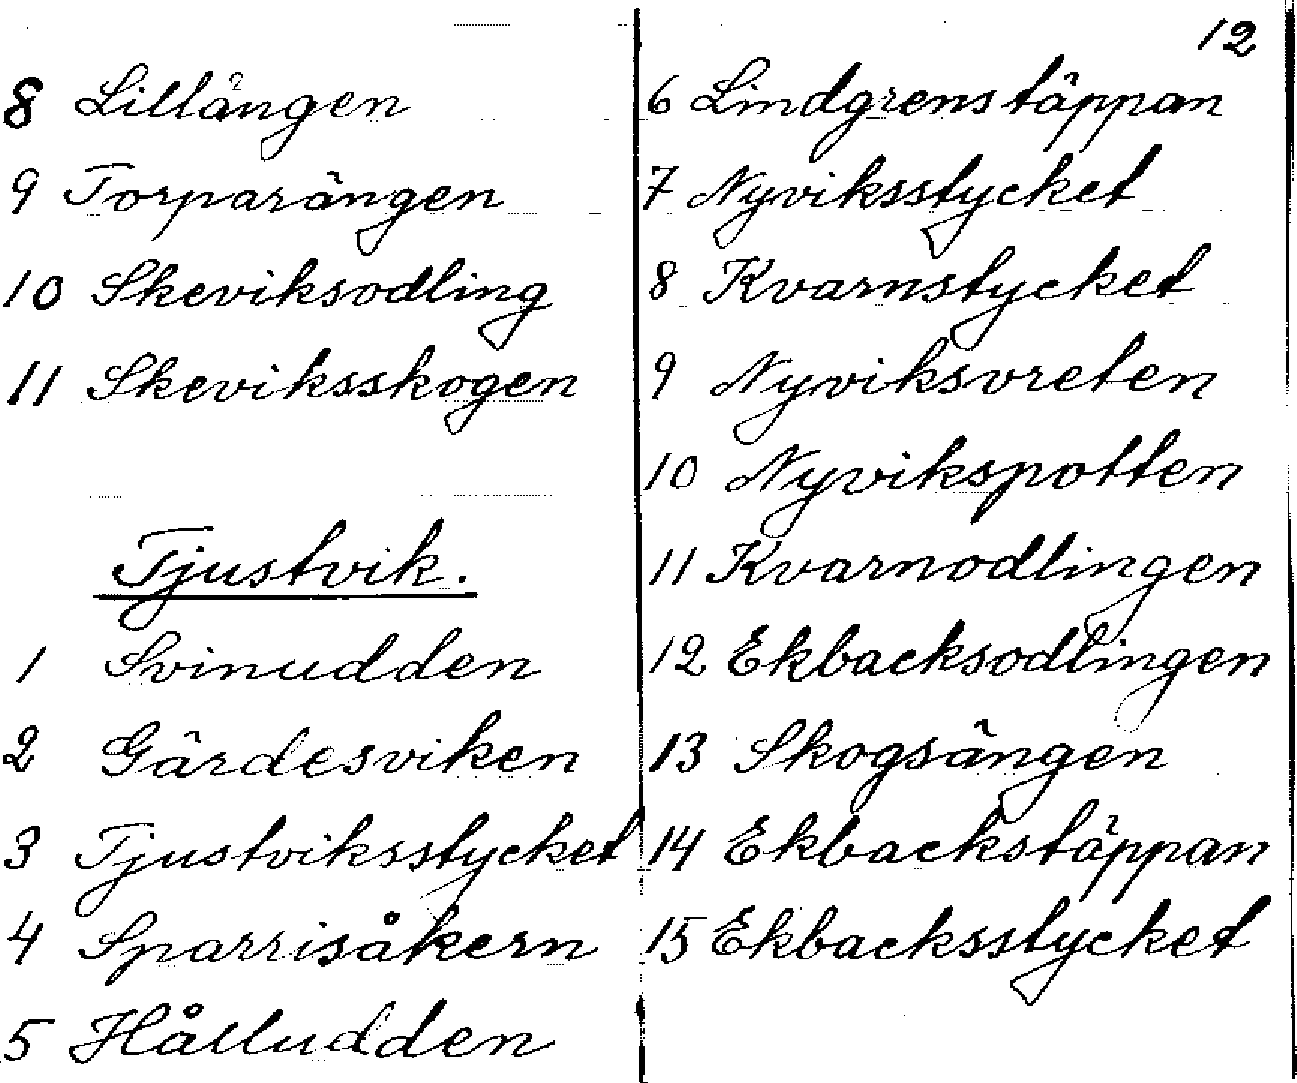 12
8 Lillängen
9 Torparängen
10 Skeviksodling
11 Skeviksskogen
Tjustvik.
1 Svinudden
2 Gärdesviken
3 Tjustviksstycket
4 Sparrisåkern
5 Hålludden
6 Lindgrenstäppan
7 Nyviksstycket
8 Kvarnstycket
9 Nyviksvreten
10 Nyvikspotten
11 Kvarnodlingen
12 Ekbacksodlingen
13 Skogsängen
14 Ekbackstäppan
15 Ekbacksstycket